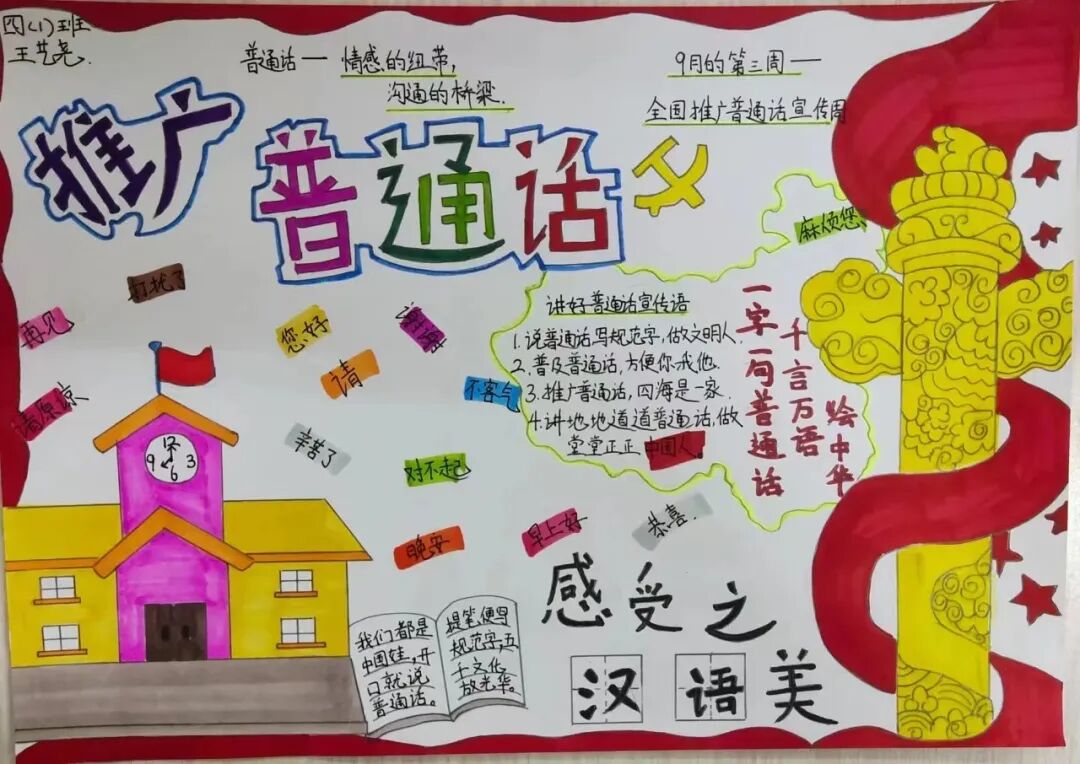 四(1)班
王艺尧.
普通话—情感的纽带,
沟通的桥梁.
9月的第三周—
全国推广普通话宣传周
推广
普通话
麻烦您
打扰了
再见
您好
谢谢
请
不客气
请原谅
辛苦了
对不起
晚安
早上好
恭喜.
讲好普通话宣传语
1.说普通话,写规范字,做文明人.
2.普及普通话,方便你我他.
3.推广普通话,四海是一家.
4.讲地地道道普通话,做
堂堂正正中国人。
一字一句普通话
千言万语
绘中华
12
9 3
6
我们都是
中国娃,开
口就说
普通话。
提笔便写
规范字,五
千文化
放光华。
感受之
汉语美